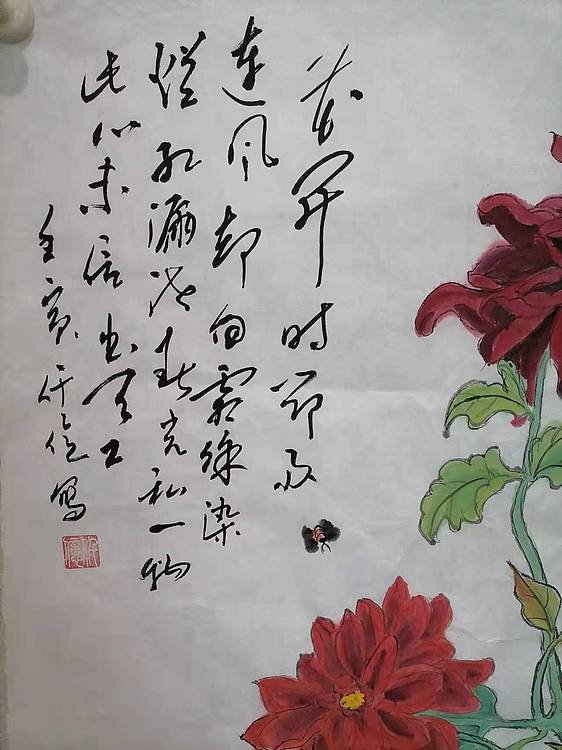 花开时节
风却向霜染
红漏泄春光私一物
此心未信出天工
壬寅仟億写